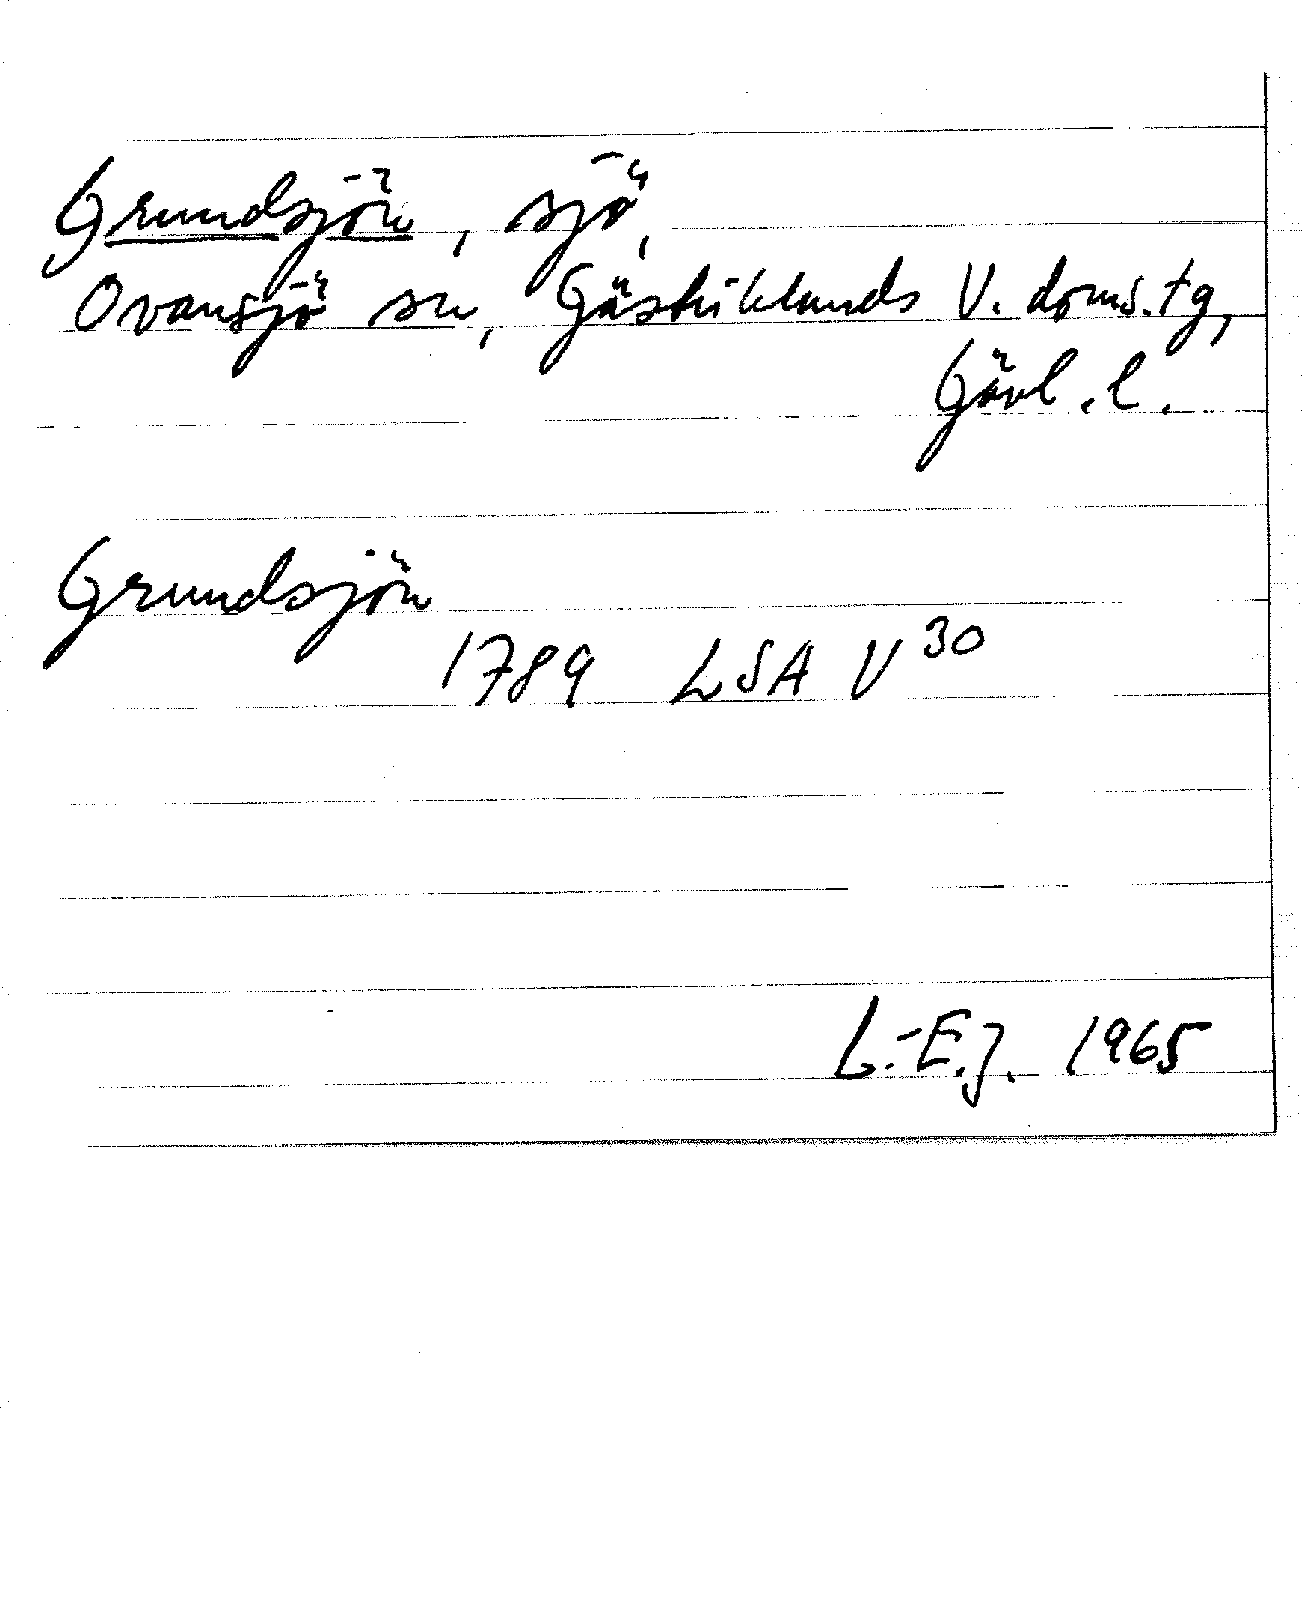 Grundsjön, sjö,
Ovansjö sn, Gästriklands V. doms.tg,
Gävl. l.
Grundsjön
1789 LSA V 30
L.-E.J. 1965